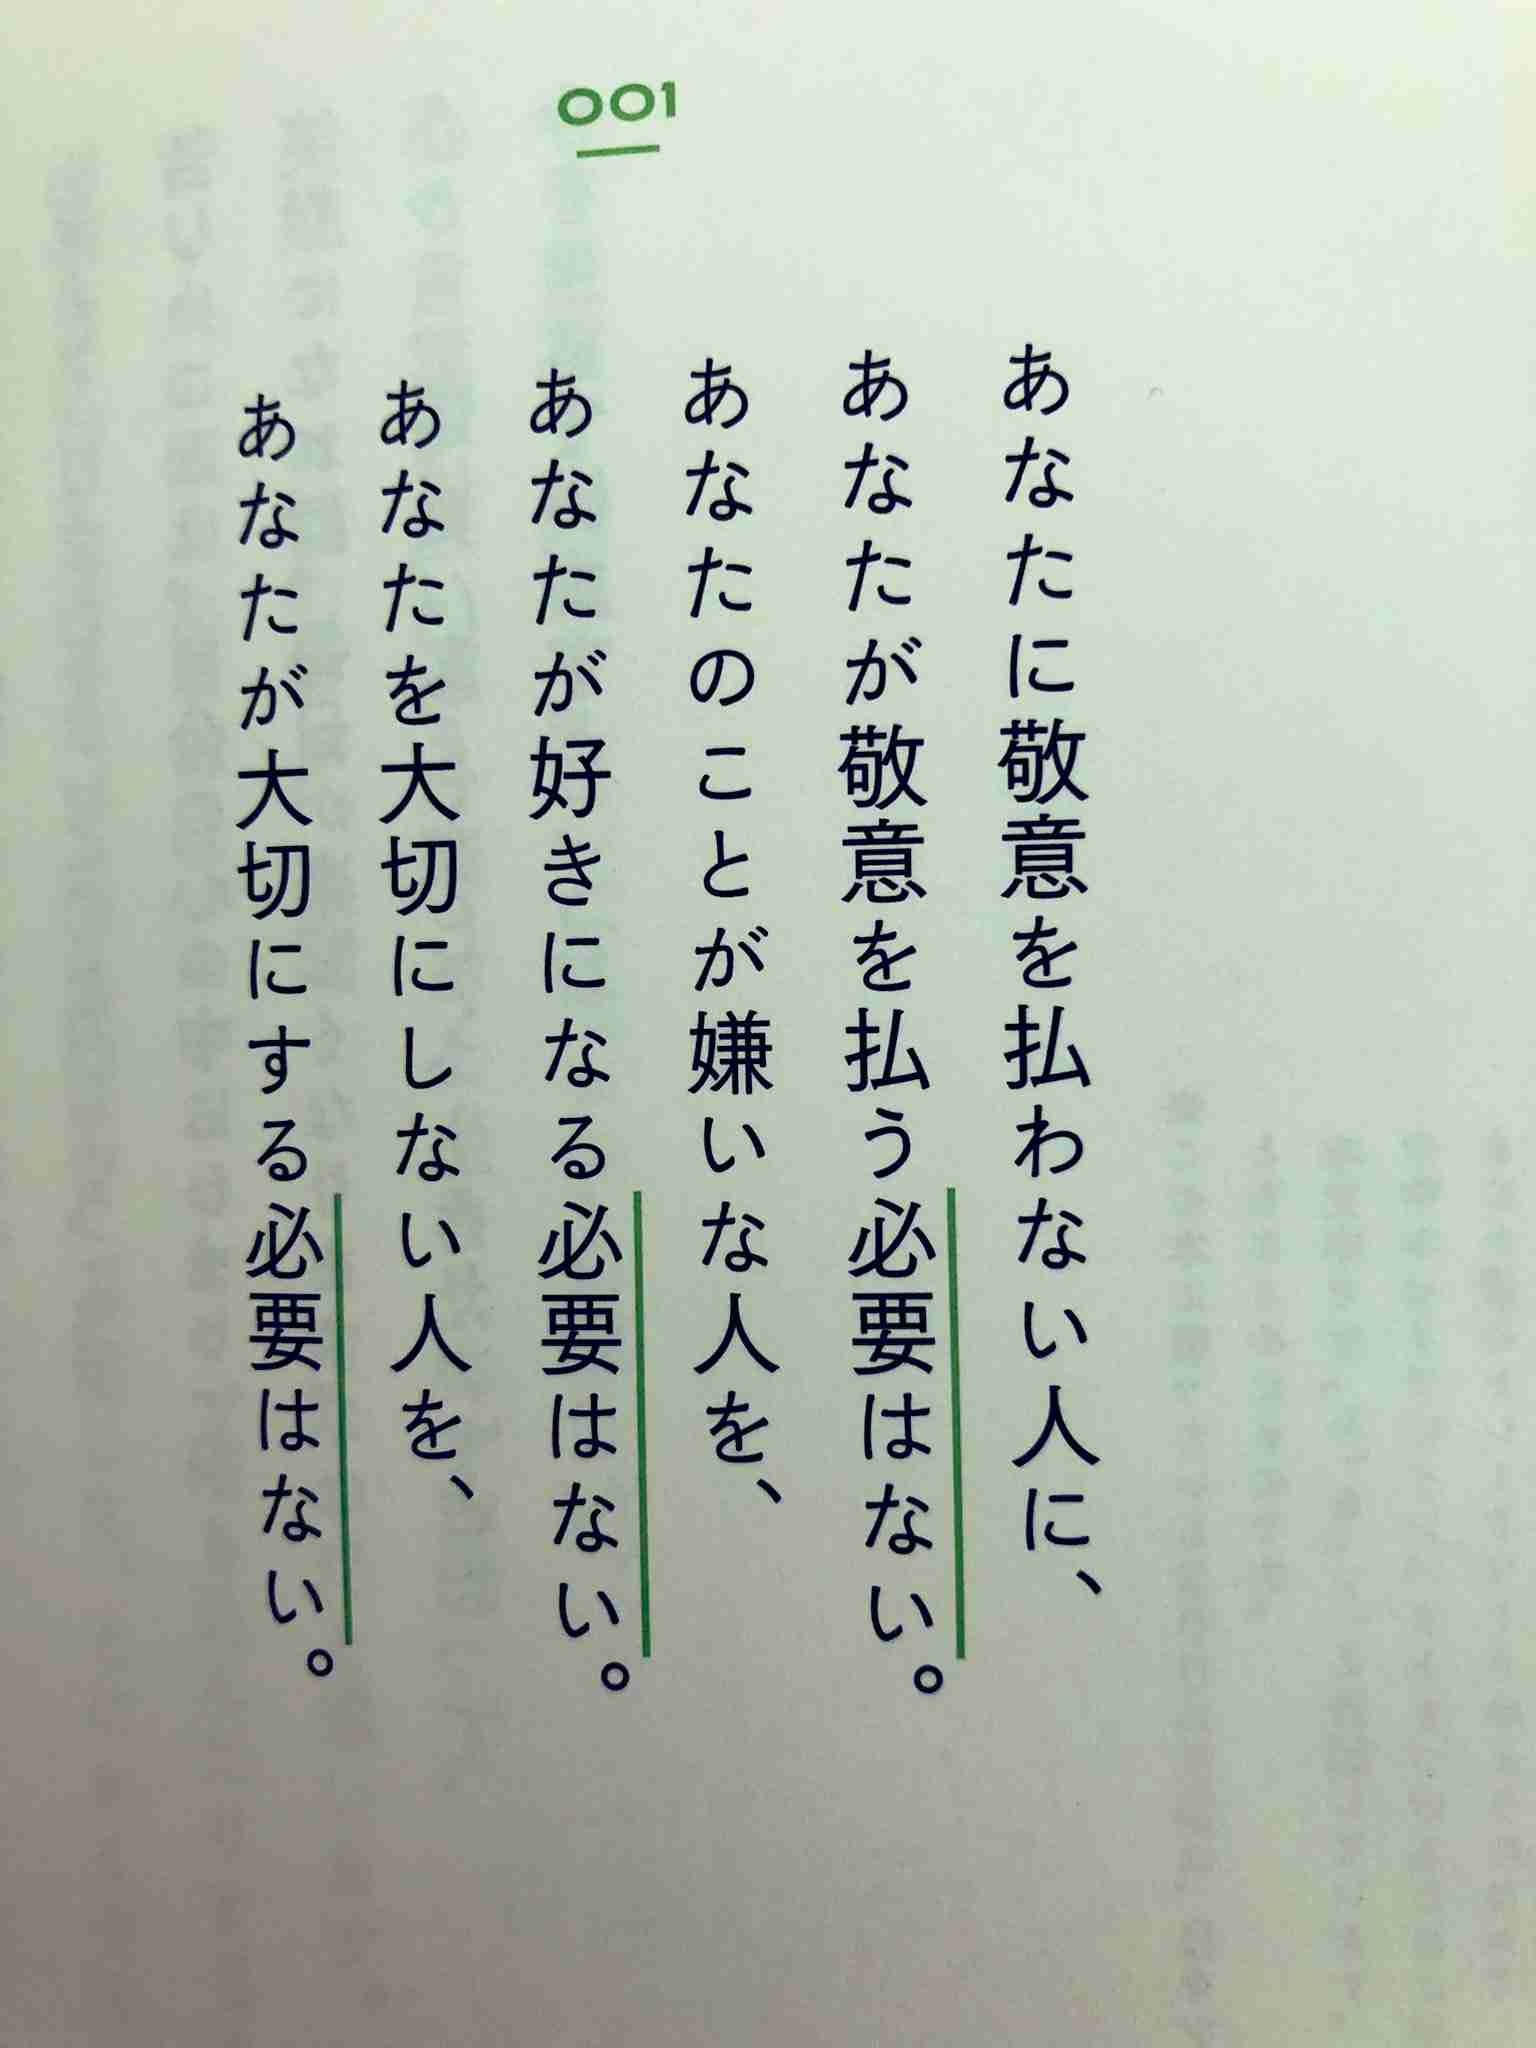 001
あなたに敬意を払わない人に、
あなたが敬意を払う必要はない。
あなたのことが嫌いな人を、
あなたが好きになる必要はない。
あなたを大切にしない人を、
あなたが大切にする必要はない。